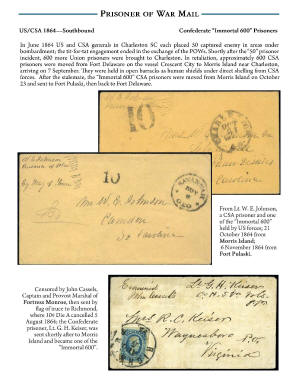 PRISONER OF WAR MAIL
US/CSA 1864—Southbound
Confederate "Immortal 600" Prisoners
In June 1864 US and CSA generals in Charleston SC each placed 50 captured enemy in areas under
bombardment; the tit-for-tat engagement ended in the exchange of the POWs. Shortly after the "50" prisoner
incident, 600 more Union prisoners were brought to Charleston. In retaliation, approximately 600 CSA
prisoners were moved from Fort Delaware on the vessel Crescent City to Morris Island near Charleston,
arriving on 7 September. They were held in open barracks as human shields under direct shelling from CSA
forces. After the stalemate, the "Immortal 600" CSA prisoners were moved from Morris Island on October
23 and sent to Fort Pulaski, then back to Fort Delaware.
10
10
SAVANNAH
GEO
Mrs W. E. Johnson
Camden
So Carolina
From Lt. W. E. Johnson,
a CSA prisoner and one
of the "Immortal 600"
held by US forces; 21
October 1864 from
Morris Island;
6 November 1864 from
Fort Pulaski.
Censored by John Cassels,
Captain and Provost Marshal of
Fortress Monroe, then sent by
flag of truce to Richmond,
where 10c Die A cancelled 5
August 1864; the Confederate
prisoner, Lt. G. H. Keiser, was
sent shortly after to Morris
Island and became one of the
"Immortal 600".
Examined
Lt G. H. Keiser
Jas. R. C. Keiser
Waynesboro P.O.
Virginia